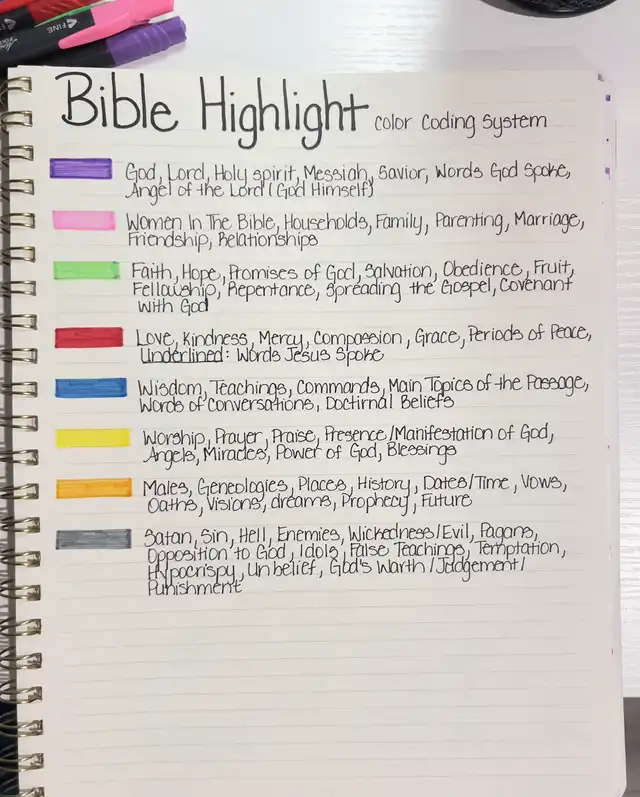 Bible Highlight color coding system
God, Lord, Holy spirit, Messiah, Savior, Words God Spoke,
Angel of the Lord (God Himself)
Women In The Bible, Households, Family, Parenting, Marriage,
Friendship, Relationships
Faith, Hope, Promises of God, Salvation, Obedience, Fruit,
Fellowship, Repentance, Spreading the Gospel, Covenant
with God
Love, Kindness, Mercy, Compassion, Grace, Periods of Peace,
Underlined: Words Jesus Spoke
Wisdom, Teachings, Commands, Main Topics of the Passage,
Words of Conversations, Doctirnal Beliefs
Worship, Prayer, Praise, Presence/Manifestation of God,
Angels, Miracles, Power of God, Blessings
Males, Geneologies, Places, History, Dates/Time, Vows,
Oaths, Visions, dreams, Prophecy, Future
Satan, Sin, Hell, Enemies, Wickedness/Evil, Pagans,
Opposition to God, Idols, False Teachings, Temptation,
Hypocrispy, Unbelief, God's Warth/Judgement/
Punishment
FINE